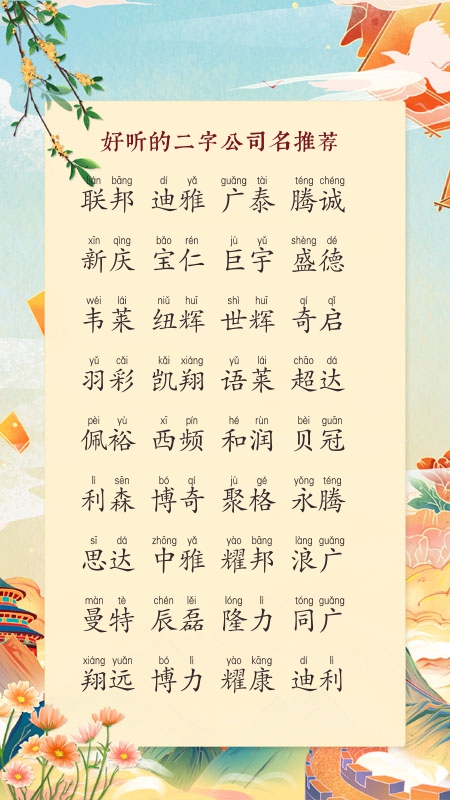 好听的二字公司名推荐
lián bāng dí yǎ guǎng tài téng chéng
联邦 迪雅 广泰 腾诚
xīn qìng bǎo rén jù yǔ shèng dé
新庆 宝仁 巨宇 盛德
wéi lái niǔ huī shì huī qí qǐ
韦莱 纽辉 世辉 奇启
yǔ cǎi kǎi xiáng yǔ lái chāo dá
羽彩 凯翔 语莱 超达
pèi yù xī pín hé rùn bèi guān
佩裕 西频 和润 贝冠
lì sēn bó qí jù gé yǒng téng
利森 博奇 聚格 永腾
sī dá zhōng yǎ yào bāng làng guǎng
思达 中雅 耀邦 浪广
màn tè chén lěi lóng lì tóng guǎng
曼特 辰磊 隆力 同广
xiáng yuǎn bó lì yào kāng dí lì
翔远 博力 耀康 迪利